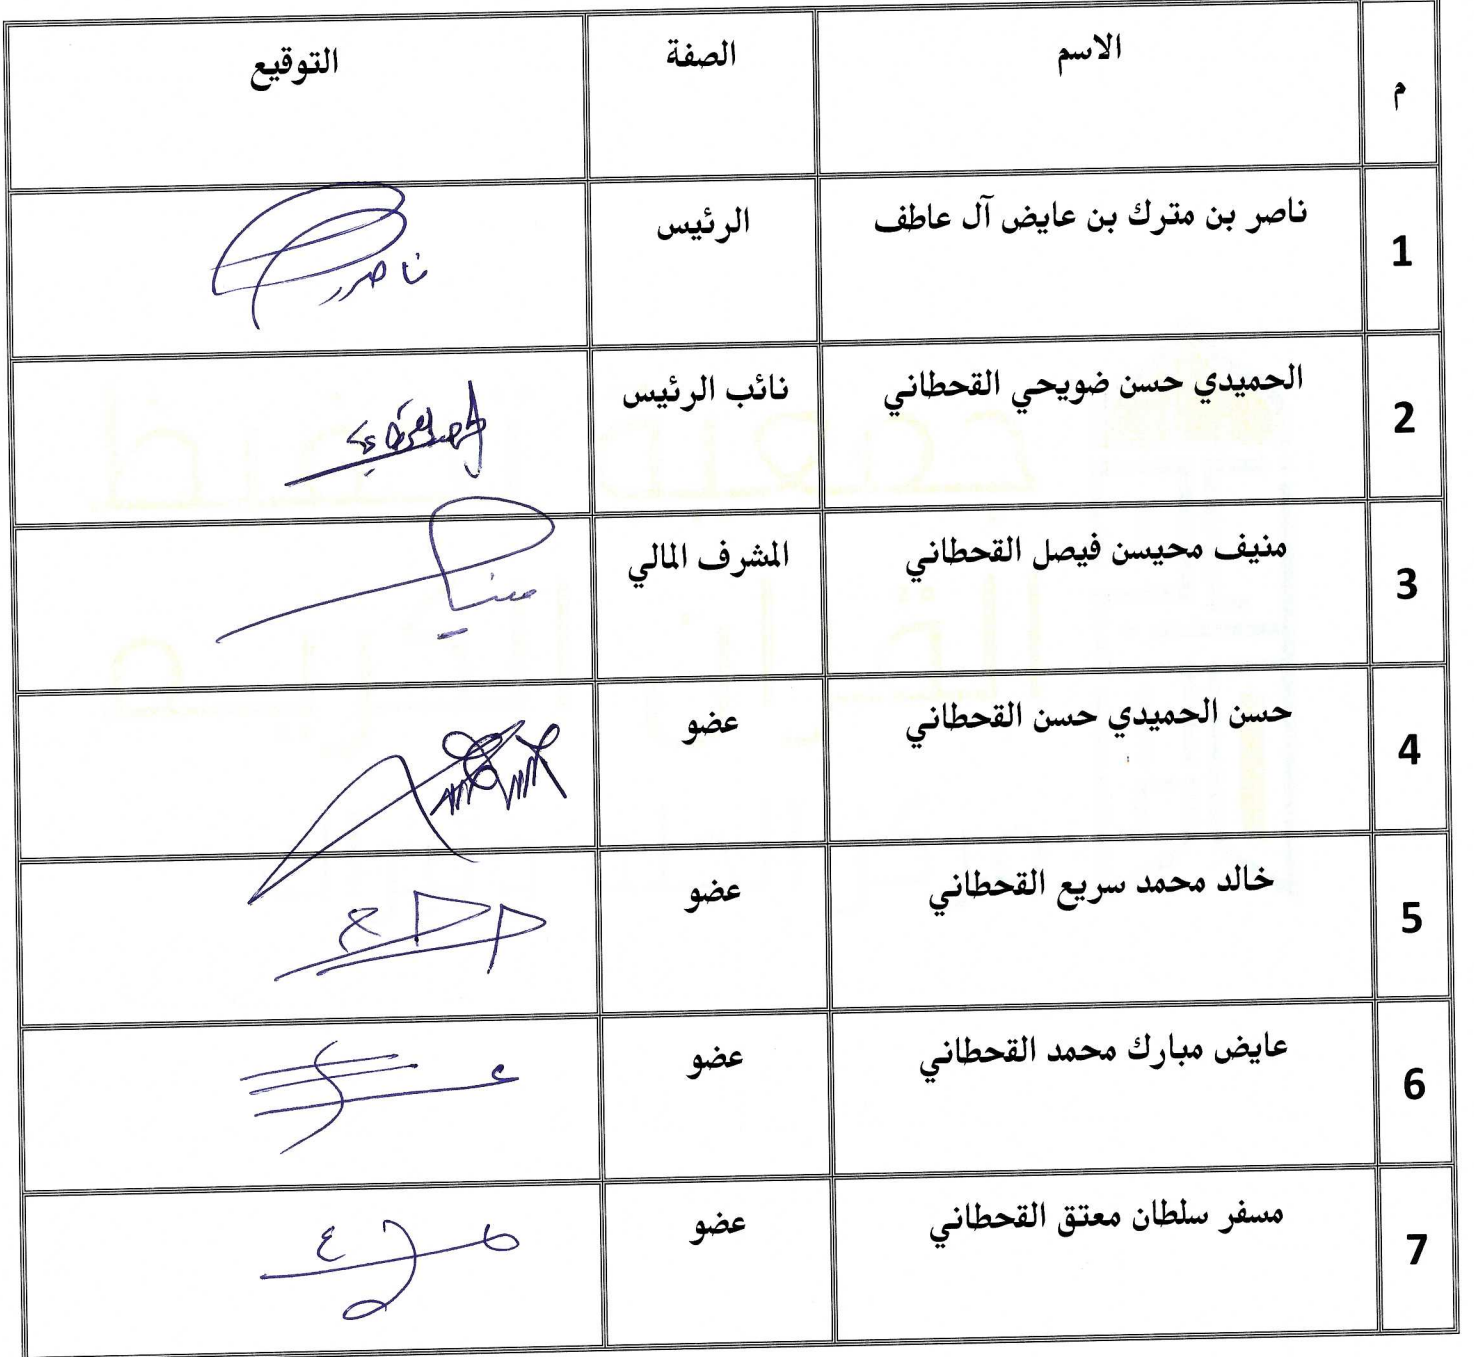 م الاسم الصفة التوقيع
1 ناصر بن مترك بن عايض آل عاطف الرئيس ناصر
2 الحميدي حسن ضويحي القحطاني نائب الرئيس
3 منيف محيسن فيصل القحطاني المشرف المالي
4 حسن الحميدي حسن القحطاني عضو
5 خالد محمد سريع القحطاني عضو
6 عايض مبارك محمد القحطاني عضو
7 مسفر سلطان معتق القحطاني عضو